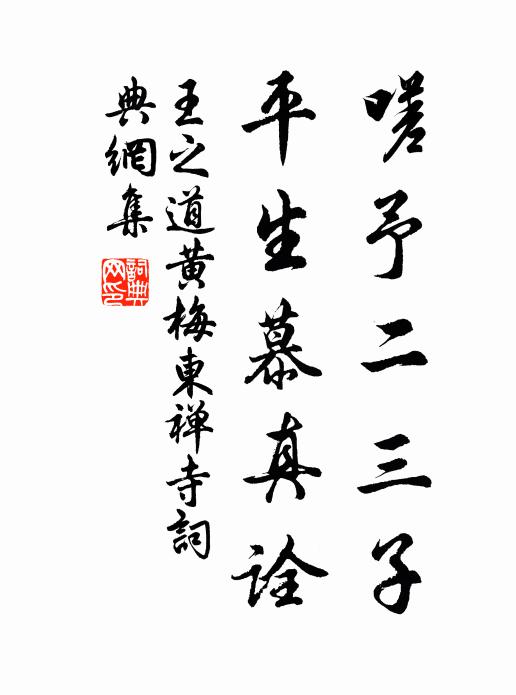 嗟予二三子
平生慕真詮
王之道黄梅東禅寺詞
典網集
詞典网印